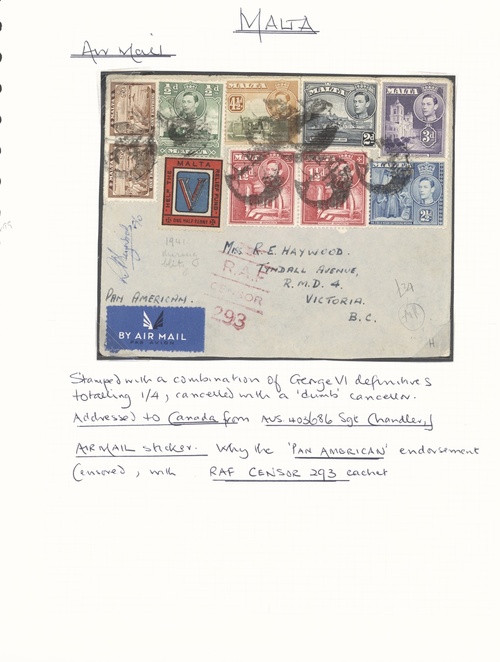 MALTA
Air Mail
MALTA
MALTA
MALTA
MALTA
½d
½d
4½d
2d
3d
MALTA
ONE HALF PENNY
MALTA
MALTA
MALTA
1941
MISS R.E. HAYWOOD.
TYNDALL AVENUE,
R.M.D. 4.
VICTORIA.
B.C.
R.A.F
CENSOR
293
PAN AMERICAN.
BY AIR MAIL
PAR AVION
H.
Stamped with a combination of George VI definitives
totalling 1/4, cancelled with a 'dumb' canceller.
Addressed to Canada from AUS.403686 Sgt Chandler, J
AIRMAIL sticker. Why the 'PAN AMERICAN' endorsement
Censored, with RAF CENSOR 293 cachet